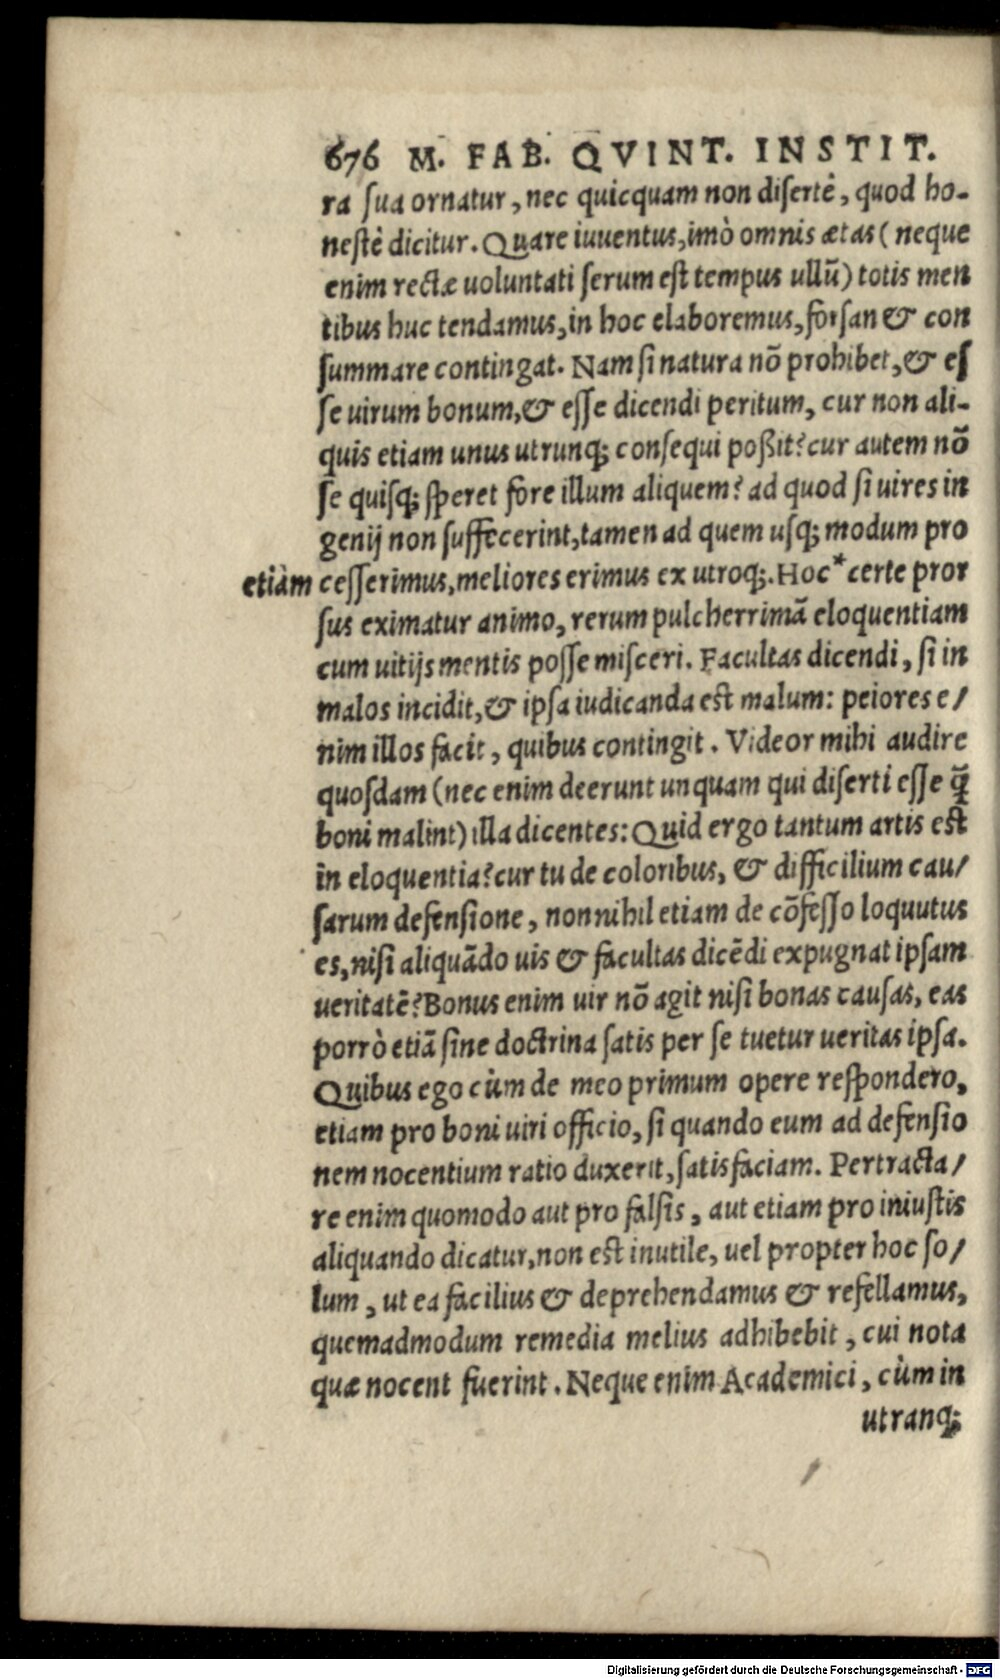 676 M. FAB. QVINT. INSTIT.
ra sua ornatur, nec quicquam non disertè, quod ho-
nestè dicitur. Quare iuuentus, imò omnis ætas (neque
enim rectæ uoluntati serum est tempus ullũ) totis men
tibus huc tendamus, in hoc elaboremus, forsan & con
summare contingat. Nam si natura nõ prohibet, & es
se uirum bonum, & esse dicendi peritum, cur non ali-
quis etiam unus utrunq; consequi poßit? cur autem nõ
se quisq; speret fore illum aliquem? ad quod si uires in
genij non suffecerint, tamen ad quem usq; modum pro
etiàm cesserimus, meliores erimus ex utroq;. Hoc* certe pror
sus eximatur animo, rerum pulcherrimã eloquentiam
cum uitijs mentis posse misceri. Facultas dicendi, si in
malos incidit, & ipsa iudicanda est malum: peiores e/
nim illos facit, quibus contingit. Videor mihi audire
quosdam (nec enim deerunt unquam qui diserti esse q̃
boni malint) illa dicentes: Quid ergo tantum artis est
in eloquentia? cur tu de coloribus, & difficilium cau/
sarum defensione, nonnihil etiam de cõfesso loquutus
es, nisi aliquãdo uis & facultas dicẽdi expugnat ipsam
ueritatẽ? Bonus enim uir nõ agit nisi bonas causas, eas
porrò etiã sine doctrina satis per se tuetur ueritas ipsa.
Quibus ego cùm de meo primum opere respondero,
etiam pro boni uiri officio, si quando eum ad defensio
nem nocentium ratio duxerit, satisfaciam. Pertracta/
re enim quomodo aut pro falsis, aut etiam pro iniustis
aliquando dicatur, non est inutile, uel propter hoc so/
lum, ut ea facilius & deprehendamus & refellamus,
quemadmodum remedia melius adhibebit, cui nota
quæ nocent fuerint. Neque enim Academici, cùm in
utranq;
Digitalisierung gefördert durch die Deutsche Forschungsgemeinschaft - DFG